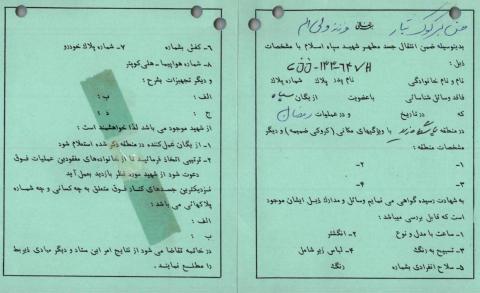 بدینوسیله ضمن انتقال جسد مطهر شهید سپاه اسلام با مشخصات
ذیل :
نام و نام خانوادگی نام پدر پلاک شماره پلاک
فاقد وسائل شناسائی باعضویت ازیگان سپاه
که در تاریخ و در عملیات رمضان
در منطقه با ویژگیهای مکانی (کروکی ضمیمه) و دیگر
مشخصات منطقه :
۱- ۲-
۳- ۴-
به شهادت رسیده گواهی می نمایم وسائل و مدارک ذیل ایشان موجود
است که قابل بررسی میباشد :
۱- ساعت با مدل و نوع ۲- انگشتر
۳- تسبیح به رنگ ۴- لباس زیر شامل
۵- سلاح انفرادی بشماره رنگ
۶- کفش بشماره ۷- شماره پلاک خودرو
۸- شماره هواپیما - هلی کوپتر
و دیگر تجهیزات بشرح :
الف : ب :
ج : د :
از شهید موجود می باشد لذا خواهشمند است :
۱- از یگان عمل کننده در منطقه ذکر شده استعلام شود
۲- ترتیبی اتخاذ فرمائید تا از خانواده‌های مفقودین عملیات فوق
دعوت شود از شهید مورد نظر بازدید بعمل آید
نزدیکترین جسدهای کنار فوق متعلق به چه کسانی و چه شماره
پلاکهائی می باشد :
الف :
ب :
در خاتمه تقاضا می شود از نتایج امر این ستاد و دیگر مبادی ذیربط
را مطلع نمایند .